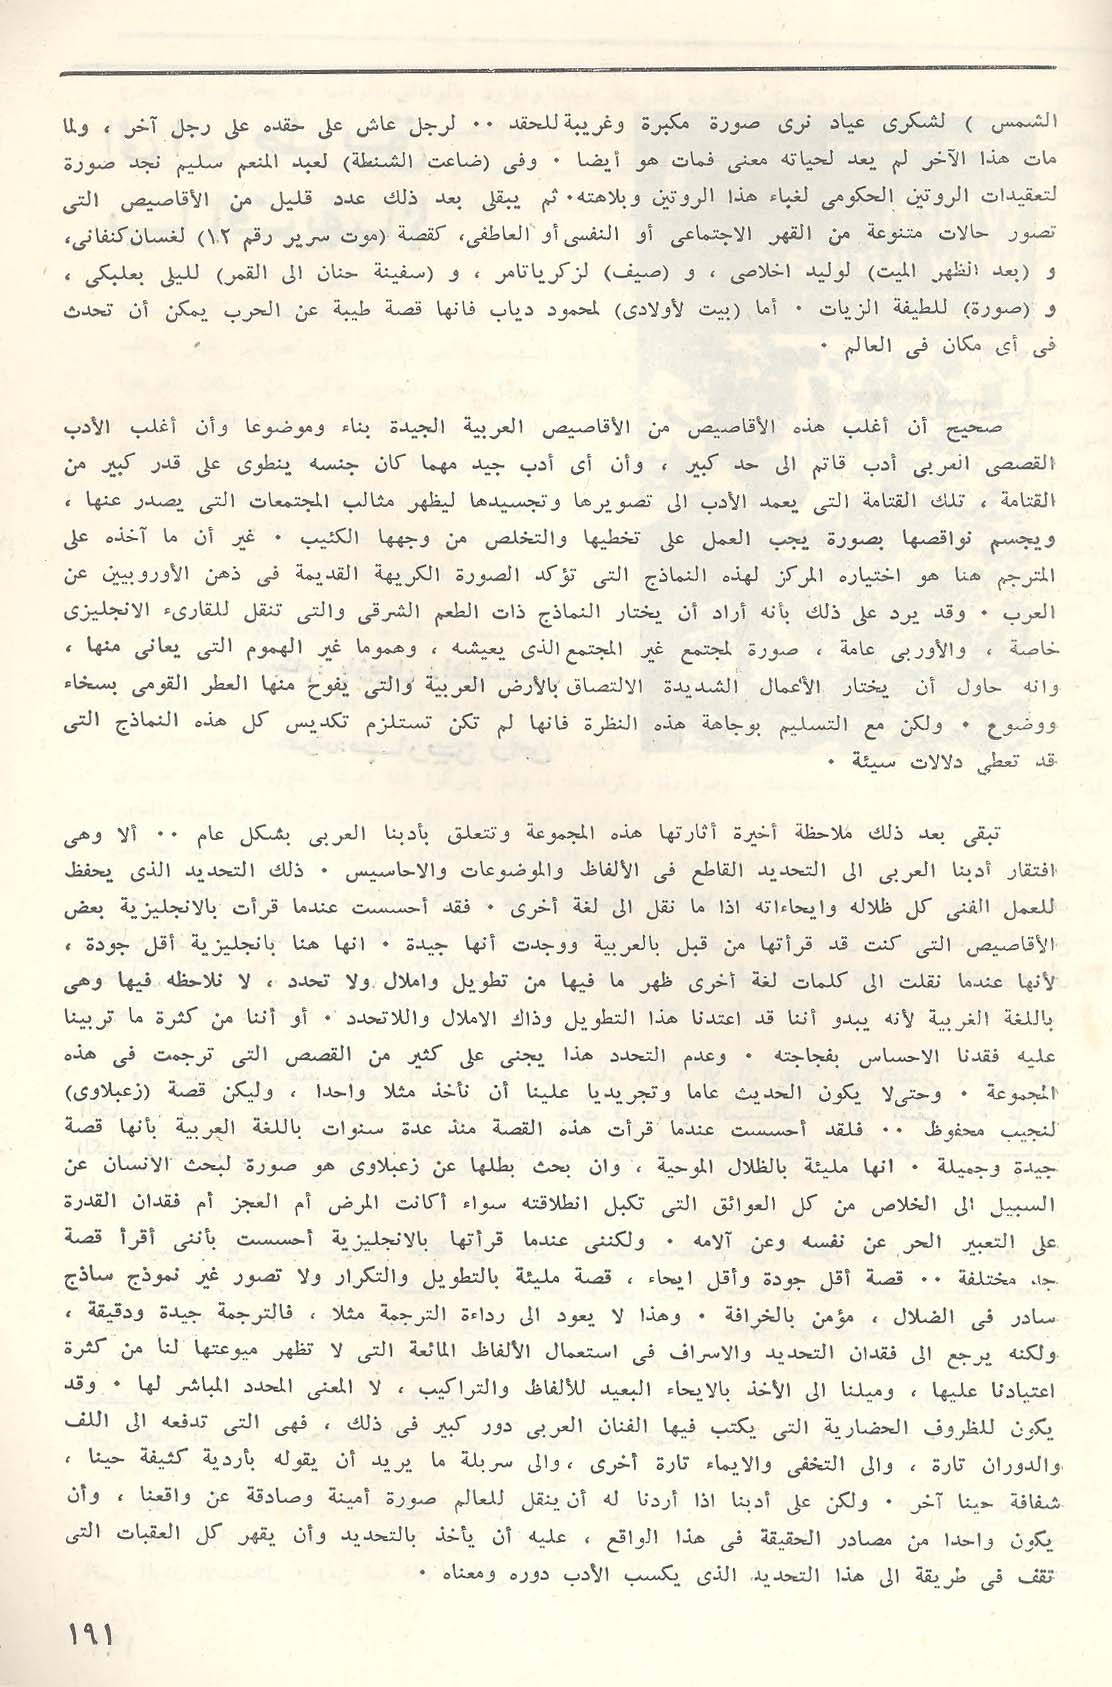 الشمس ) لشكرى عياد نرى صورة مكبرة وغريبة للحقد ٠٠ لرجل عاش على حقده على رجل آخر ، ولما
مات هذا الآخر لم يعد لحياته معنى فمات هو أيضا ٠ وفى (ضاعت الشنطة) لعبد المنعم سليم نجد صورة
لتعقيدات الروتين الحكومى لغباء هذا الروتين وبلاهته٠ ثم يبقى بعد ذلك عدد قليل من الأقاصيص التى
تصور حالات متنوعة من القهر الاجتماعى أو النفسى أو العاطفى، كقصة (موت سرير رقم ١٢) لغسان كنفانى،
و (بعد الظهر الميت) لوليد اخلاصى ، و (صيف) لزكريا تامر ، و (سفينة حنان الى القمر) لليلى بعلبكى ،
و (صورة) للطيفة الزيات ٠ أما (بيت لأولادى) لمحمود دياب فانها قصة طيبة عن الحرب يمكن أن تحدث
فى أى مكان فى العالم ٠
صحيح أن أغلب هذه الأقاصيص من الأقاصيص العربية الجيدة بناء وموضوعا وأن أغلب الأدب
القصصى العربى أدب قاتم الى حد كبير ، وأن أى أدب جيد مهما كان جنسه ينطوى على قدر كبير من
القتامة ، تلك القتامة التى يعمد الأدب الى تصويرها وتجسيدها ليظهر مثالب المجتمعات التى يصدر عنها ،
ويجسم نواقصها بصورة يجب العمل على تخطيها والتخلص من وجهها الكئيب ٠ غير أن ما آخذه على
المترجم هنا هو اختياره المركز لهذه النماذج التى تؤكد الصورة الكريهة القديمة فى ذهن الأوروبيين عن
العرب ٠ وقد يرد على ذلك بأنه أراد أن يختار النماذج ذات الطعم الشرقى والتى تنقل للقارىء الانجليزى
خاصة ، والأوربى عامة ، صورة لمجتمع غير المجتمع الذى يعيشه ، وهموما غير الهموم التى يعانى منها ،
وانه حاول أن يختار الأعمال الشديدة الالتصاق بالأرض العربية والتى يفوح منها العطر القومى بسخاء
ووضوح ٠ ولكن مع التسليم بوجاهة هذه النظرة فانها لم تكن تستلزم تكديس كل هذه النماذج التى
قد تعطى دلالات سيئة ٠
تبقى بعد ذلك ملاحظة أخيرة أثارتها هذه المجموعة وتتعلق بأدبنا العربى بشكل عام ٠٠ ألا وهى
افتقار أدبنا العربى الى التحديد القاطع فى الألفاظ والموضوعات والاحاسيس ٠ ذلك التحديد الذى يحفظ
للعمل الفنى كل ظلاله وايحاءاته اذا ما نقل الى لغة أخرى ٠ فقد أحسست عندما قرأت بالانجليزية بعض
الأقاصيص التى كنت قد قرأتها من قبل بالعربية ووجدت أنها جيدة ٠ انها هنا بانجليزية أقل جودة ،
لأنها عندما نقلت الى كلمات لغة أخرى ظهر ما فيها من تطويل واملال ولا تحدد ، لا نلاحظه فيها وهى
باللغة الغربية لأنه يبدو أننا قد اعتدنا هذا التطويل وذاك الاملال واللاتحدد ٠ أو أننا من كثرة ما تربينا
عليه فقدنا الاحساس بفجاجته ٠ وعدم التحدد هذا يجنى على كثير من القصص التى ترجمت فى هذه
المجموعة ٠ وحتى لا يكون الحديث عاما وتجريديا علينا أن نأخذ مثلا واحدا ، وليكن قصة (زعبلاوى)
لنجيب محفوظ ٠٠ فلقد أحسست عندما قرأت هذه القصة منذ عدة سنوات باللغة العربية بأنها قصة
جيدة وجميلة ٠ انها مليئة بالظلال الموحية ، وان بحث بطلها عن زعبلاوى هو صورة لبحث الانسان عن
السبيل الى الخلاص من كل العوائق التى تكبل انطلاقته سواء أكانت المرض أم العجز أم فقدان القدرة
على التعبير الحر عن نفسه وعن آلامه ٠ ولكننى عندما قرأتها بالانجليزية أحسست بأننى أقرأ قصة
جد مختلفة ٠٠ قصة أقل جودة وأقل ايحاء ، قصة مليئة بالتطويل والتكرار ولا تصور غير نموذج ساذج
سادر فى الضلال ، مؤمن بالخرافة ٠ وهذا لا يعود الى رداءة الترجمة مثلا ، فالترجمة جيدة ودقيقة ،
ولكنه يرجع الى فقدان التحديد والاسراف فى استعمال الألفاظ المائعة التى لا تظهر ميوعتها لنا من كثرة
اعتيادنا عليها ، وميلنا الى الأخذ بالايحاء البعيد للألفاظ والتراكيب ، لا المعنى المحدد المباشر لها ٠ وقد
يكون للظروف الحضارية التى يكتب فيها الفنان العربى دور كبير فى ذلك ، فهى التى تدفعه الى اللف
والدوران تارة ، والى التخفى والايماء تارة أخرى ، والى سربلة ما يريد أن يقوله بأردية كثيفة حينا ،
شفافة حينا آخر ٠ ولكن على أدبنا اذا أردنا له أن ينقل للعالم صورة أمينة وصادقة عن واقعنا ، وأن
يكون واحدا من مصادر الحقيقة فى هذا الواقع ، عليه أن يأخذ بالتحديد وأن يقهر كل العقبات التى
تقف فى طريقة الى هذا التحديد الذى يكسب الأدب دوره ومعناه ٠
١٩١